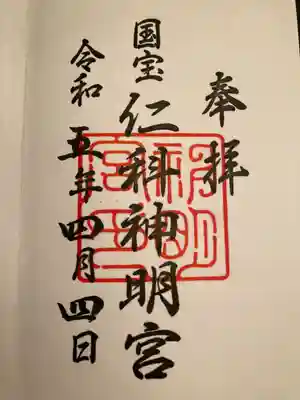 奉拝
国宝 仁科神明宮
令和五年四月四日